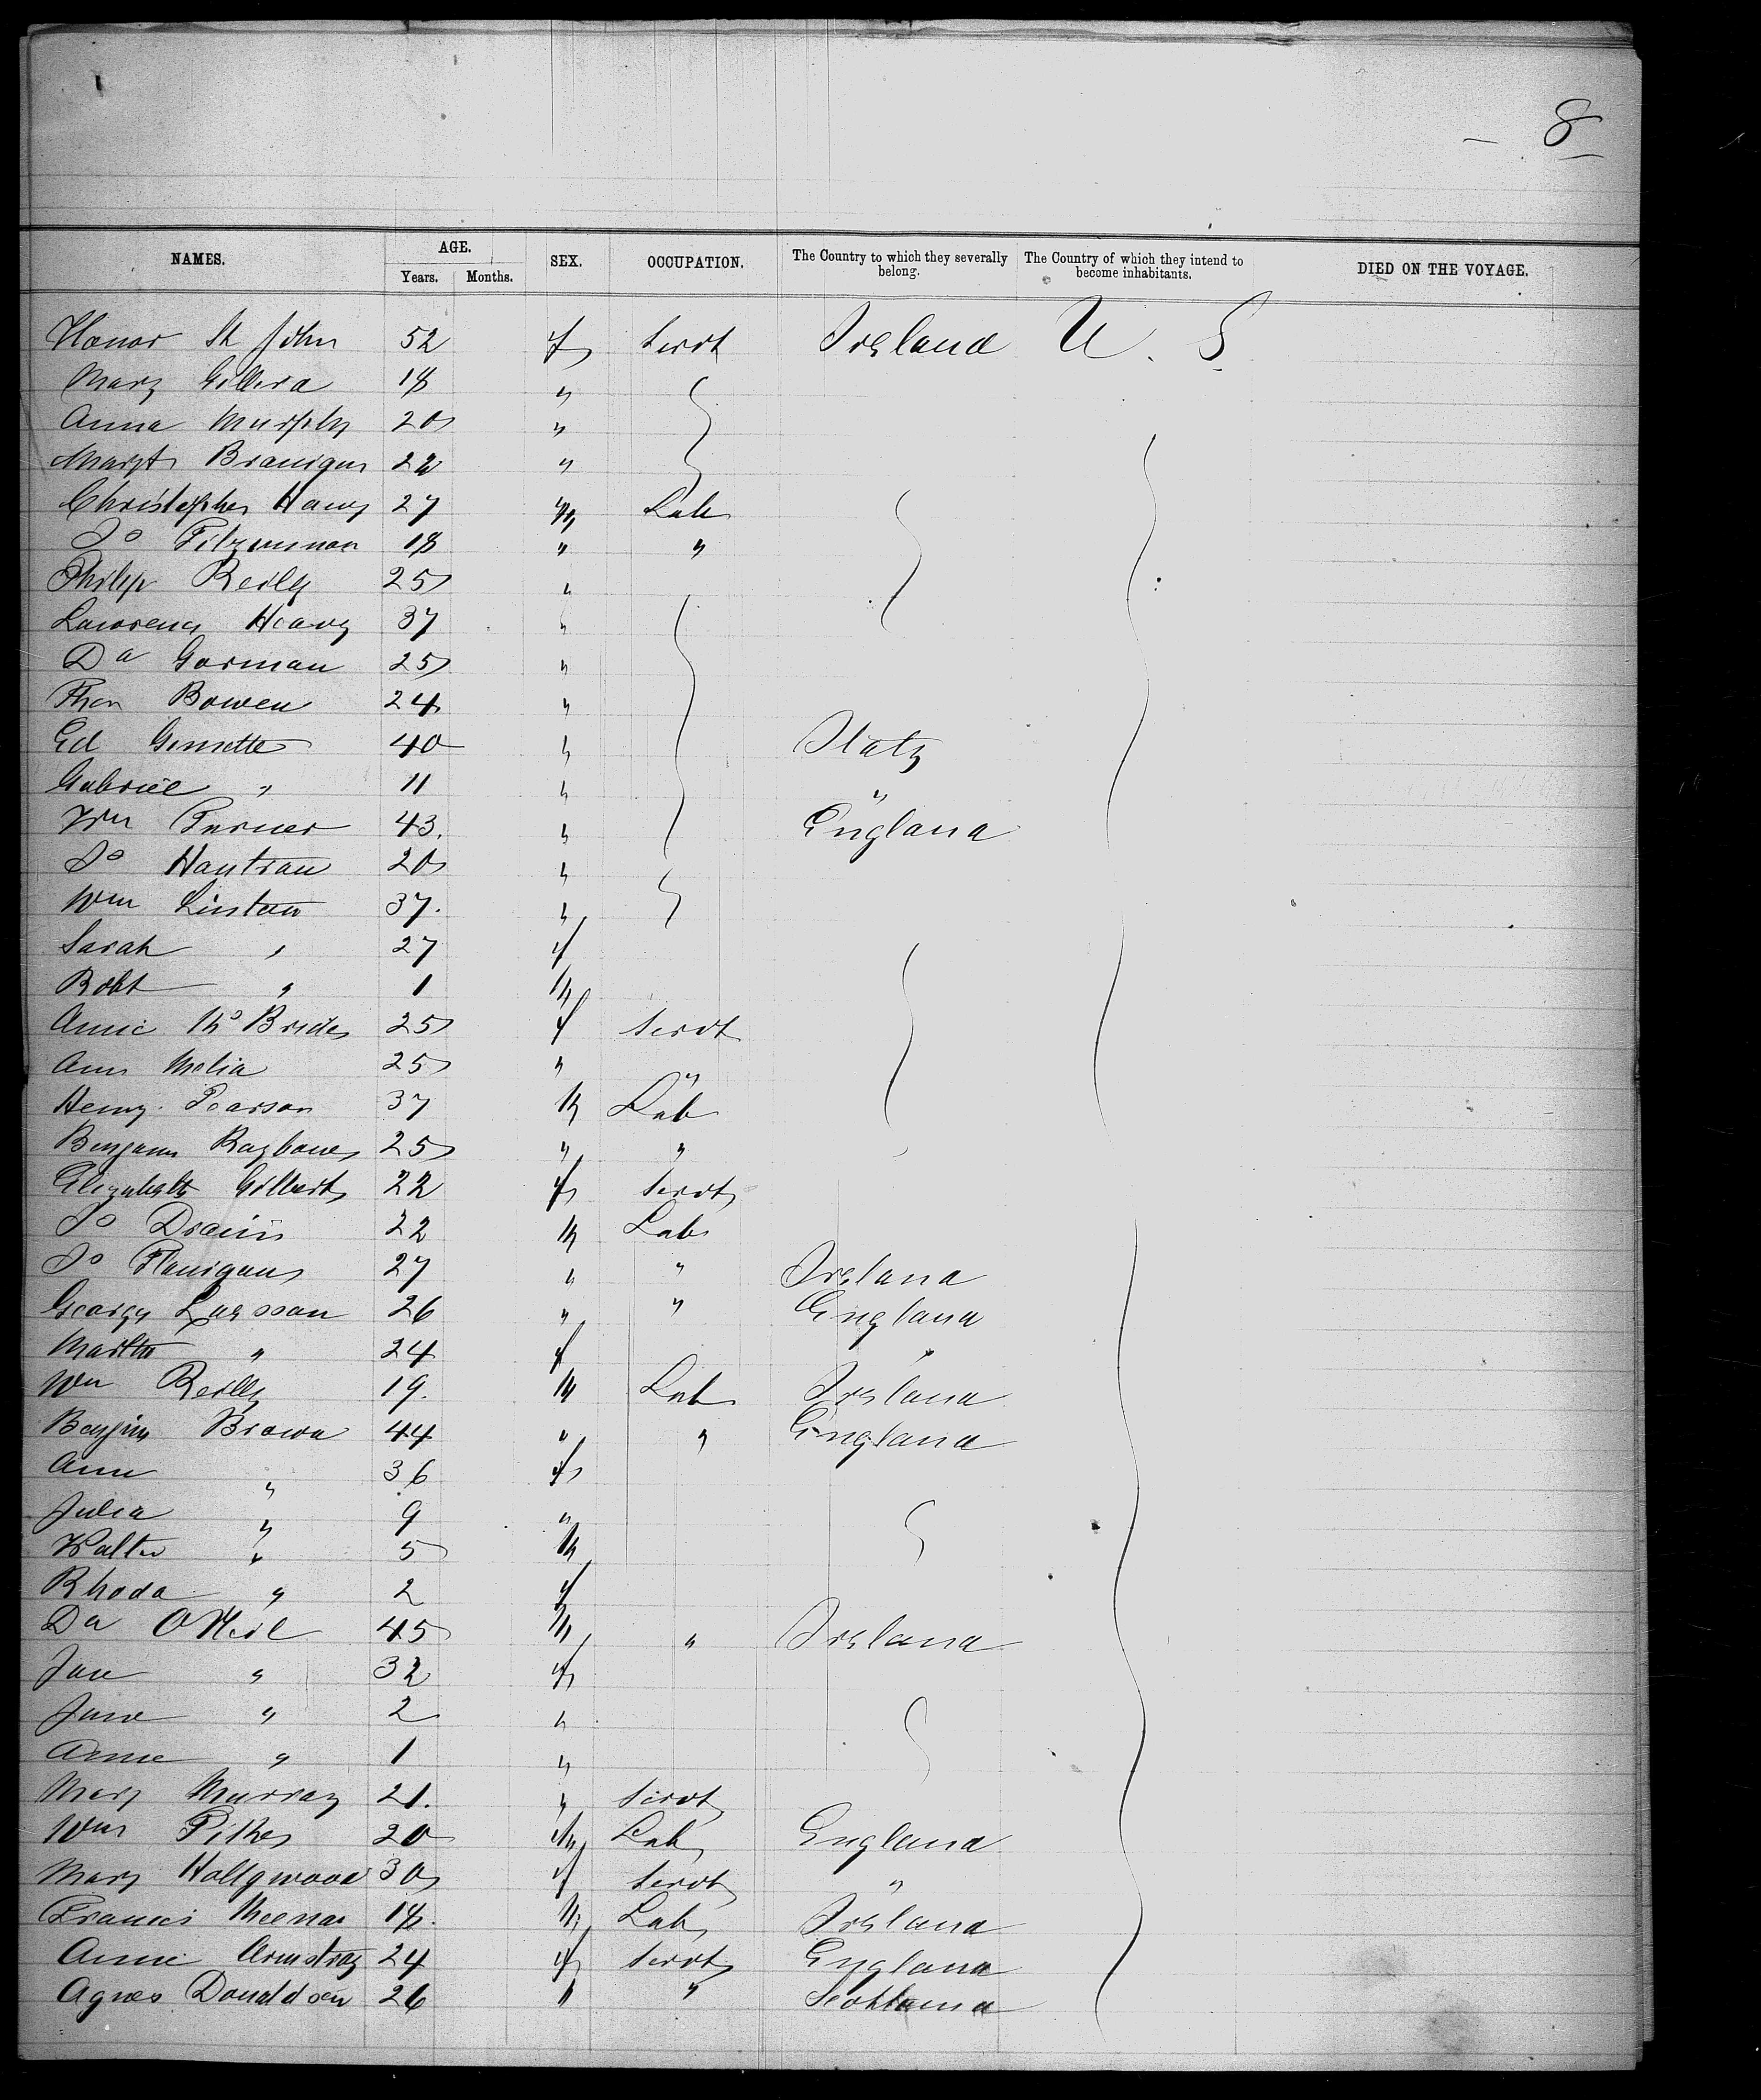 8
NAMES. AGE. Years. Months. SEX. OCCUPATION. The Country to which they severally belong. The Country of which they intend to become inhabitants. DIED ON THE VOYAGE.
Honor St John 52 f Servt Ireland U. S
Mary 18 "
Anna Murphy 20 "
Margt Branigan 22 "
Christopher 27 m Lab
Jo 18 " "
Philip Reilly 25 "
Lawrence 37 "
Da Gorman 25 "
Bowen 24 "
Ed 40 " Italy
Gabriel " 11 " "
Wm Turner 43. " England
Jo 20 "
Wm 37. "
Sarah " 27 f
Robt " 1 M
Annie McBride 25 f servt
Ann Melia 25 " "
Henry Pearson 37 M Lab
25 " "
Elizabeth Gilbert 22 f Servt
Jo 22 M Lab
Jo Flanigan 27 " " Ireland
26 " " England
Martha " 24 f "
Wm Reilly 19. M Lab Ireland
Brown 44 " " England
Ann " 36 f
Julia " 9 "
Walter " 5 M
Rhoda " 2 f
Da ONeil 45 M " Ireland
Jane " 32 f
Jane " 2 "
Annie " 1 "
Mary Murray 21. " Servt
Wm Pike 20 M Lab England
Mary Hollywood 30 f Servt "
Francis 18. M Lab Ireland
Annie Armstrong 24 f Servt England
Agnes Donaldson 26 " " Scotland